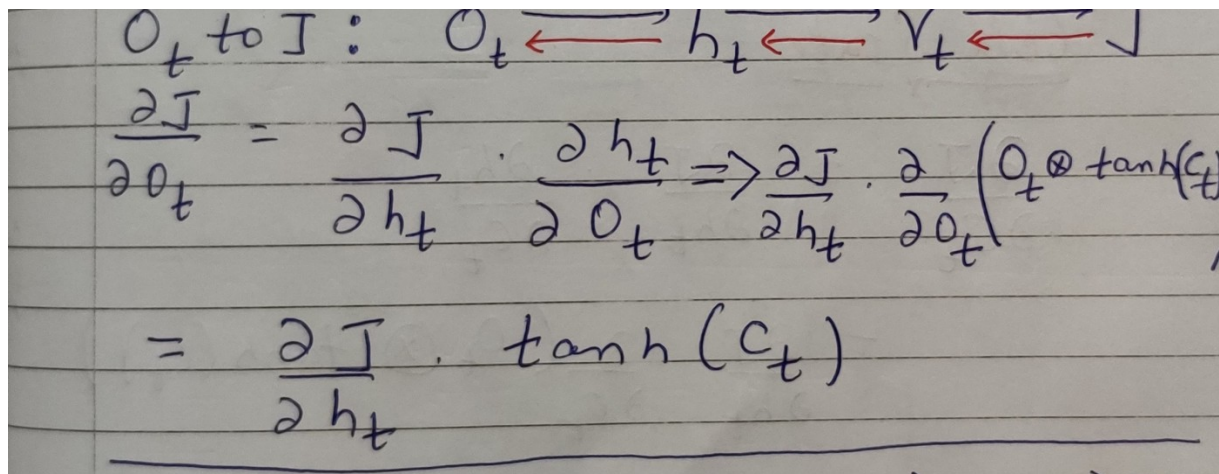 O_t to J : O_t ⇄ h_t ⇄ V_t ⇄ J
∂J/∂O_t = ∂J/∂h_t . ∂h_t/∂O_t => ∂J/∂h_t . ∂/∂O_t (O_t ⊗ tanh(C_t)
= ∂J/∂h_t . tanh(C_t)